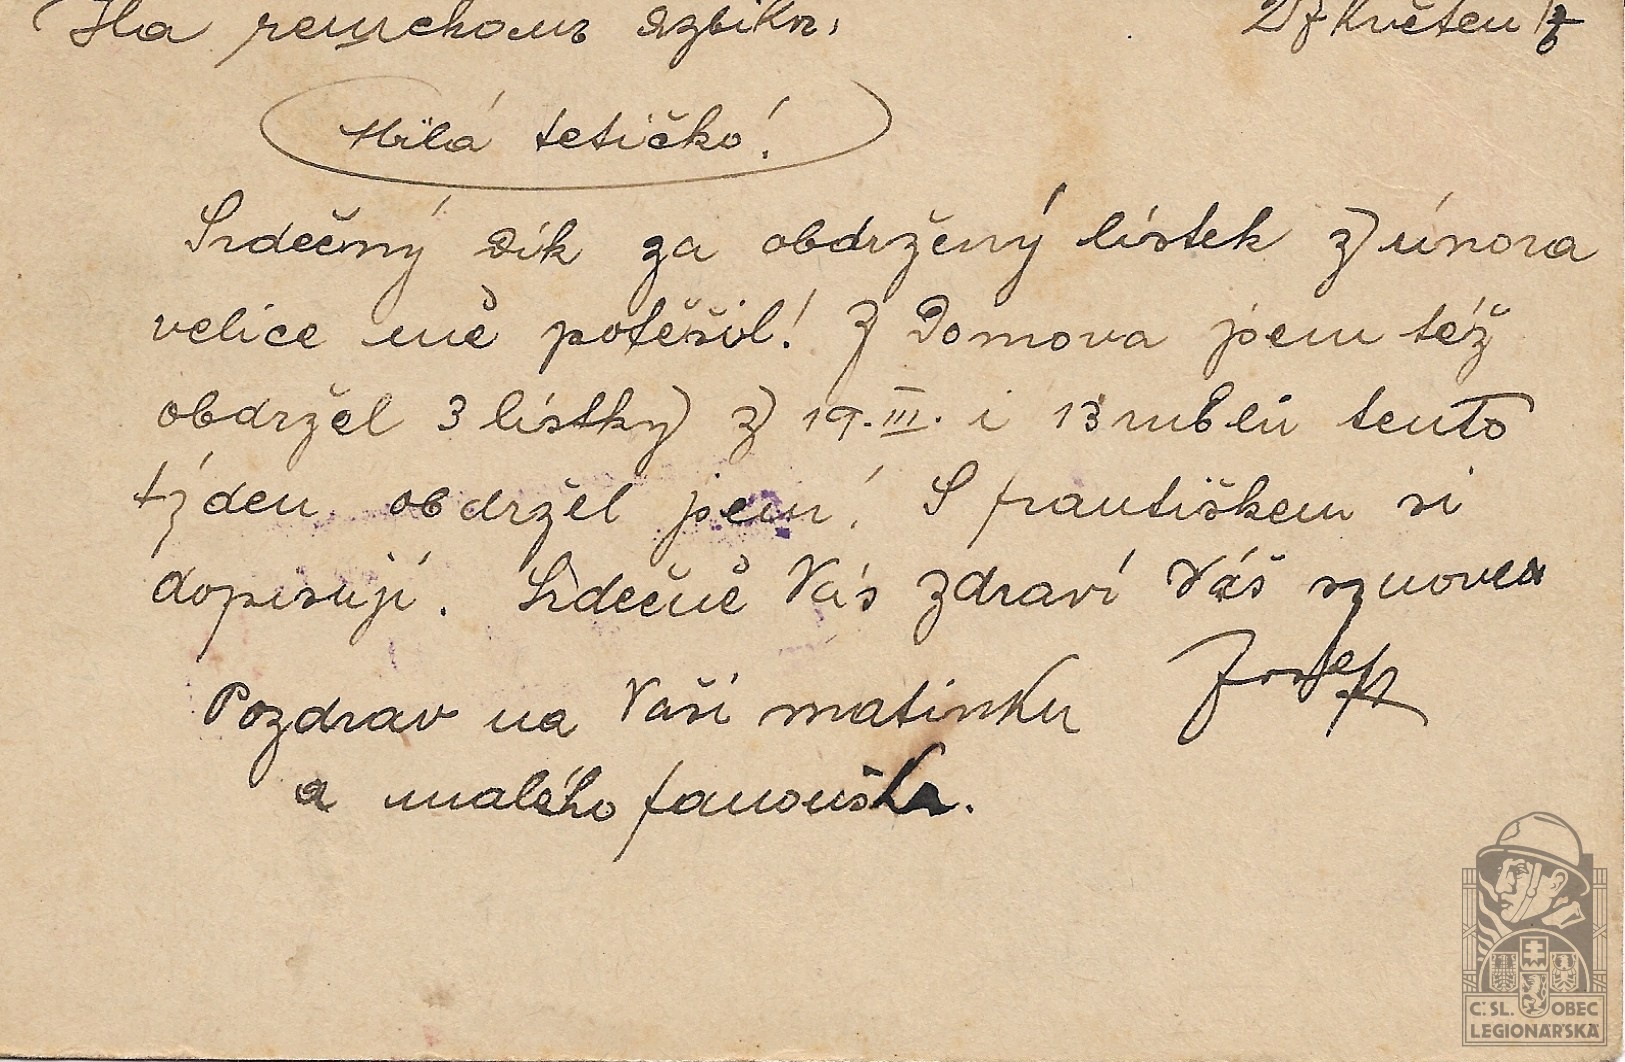 На чешскомъ языкѣ, 27 Květen 17/6
Milá tetičko!
Srdečný dík za obdržený lístek z února
velice mě potěšil! Z Domova jsem též
obdržel 3 lístky z 19.III. i 13 rublů tento
týden obdržel jsem! S františkem si
dopisuji. Srdečně Vás zdraví Váš synovec
Josef
Pozdrav na Vaší matinku
a malého fanouška.
Č.SL. OBEC
LEGIONÁŘSKÁ